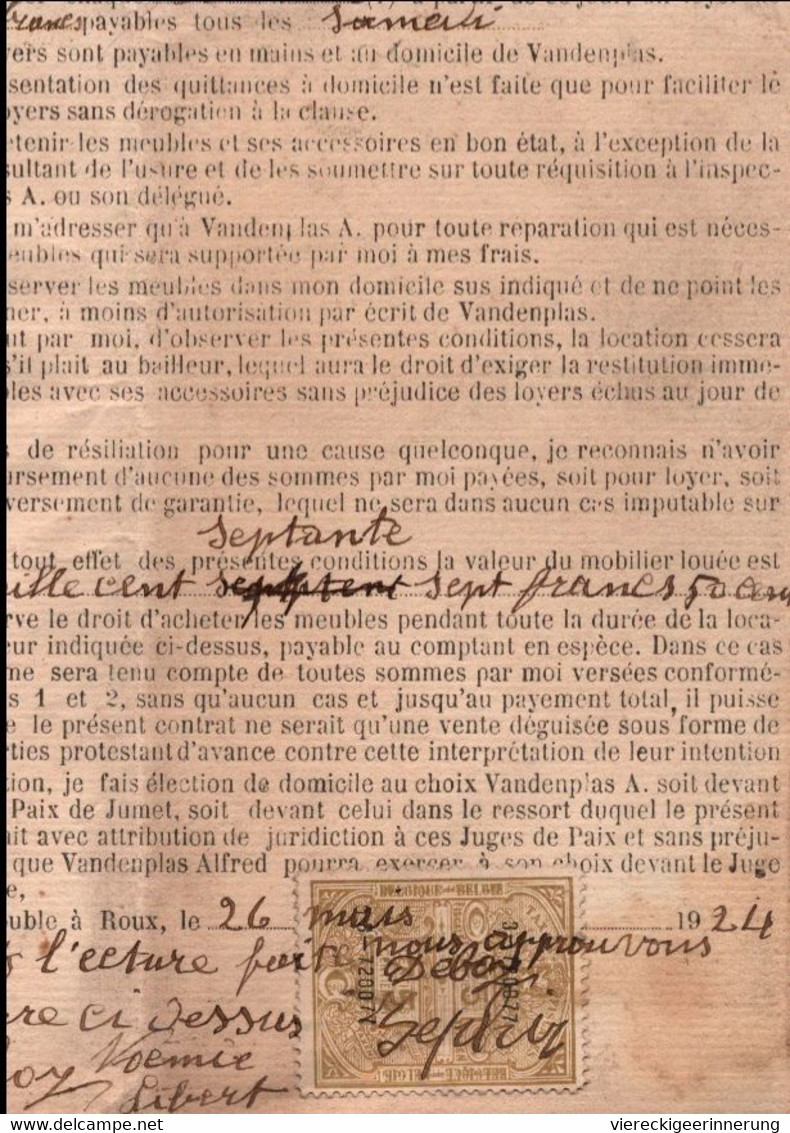 francs payables tous les samedi
yers sont payables en mains et au domicile de Vandenplas.
sentation des quittances à domicile n'est faite que pour faciliter le
oyers sans dérogation à la clause.
etenir les meubles et ses accessoires en bon état, à l'exception de la
sultant de l'usure et de les soumettre sur toute réquisition à l'inspec-
s A. ou son délégué.
m'adresser qu'à Vandenplas A. pour toute reparation qui est néces-
eubles qui sera supportée par moi à mes frais.
server les meubles dans mon domicile sus indiqué et de ne point les
ner, à moins d'autorisation par écrit de Vandenplas.
ut par moi, d'observer les présentes conditions, la location cessera
s'il plait au bailleur, lequel aura le droit d'exiger la restitution imme-
bles avec ses accessoires sans préjudice des loyers échus au jour de
s de résiliation pour une cause quelconque, je reconnais n'avoir
ursement d'aucune des sommes par moi payées, soit pour loyer, soit
versement de garantie, lequel ne sera dans aucun cas imputable sur
septante
tout effet des présentes conditions la valeur du mobilier louée est
mille cent sept francs 50 cen
rve le droit d'acheter les meubles pendant toute la durée de la loca-
eur indiquée ci-dessus, payable au comptant en espèce. Dans ce cas
me sera tenu compte de toutes sommes par moi versées conformé-
s 1 et 2, sans qu'aucun cas et jusqu'au payement total, il puisse
e le présent contrat ne serait qu'une vente déguisée sous forme de
rties protestant d'avance contre cette interprétation de leur intention
tion, je fais élection de domicile au choix Vandenplas A. soit devant
Paix de Jumet, soit devant celui dans le ressort duquel le présent
ait avec attribution de juridiction à ces Juges de Paix et sans préju-
que Vandenplas Alfred pourra exercer à son choix devant le Juge
e,
BELGIQUE BELGIË
ouble à Roux, le 26 mars 1924
s l'ecture faite nous approuvons
re ci dessus
Noémie
Libert
BELGIQUE-BELGIË
delcampe.net
viereckigeerinnerung